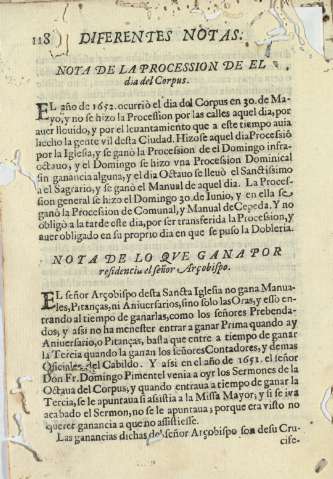 118 DIFERENTES NOTAS.
NOTA DE LA PROCESSION DE EL
dia del Corpus.
EL año de 1652. ocurriò el dia del Corpus en 30. de Ma-
yo, y no se hizo la Procession por las calles aquel dia, por
auer llouido, y por el leuantamiento que a este tiempo auia
hecho la gente vil desta Ciudad. Hizose aquel dia Processiõ
por la Iglesia, y se ganò la Procession de el Domingo infra-
octauo, y el Domingo se hizo vna Procession Dominical
sin ganancia alguna, y el dia Octauo se lleuò el Sanctissimo
a el Sagrario, y se ganò el Manual de aquel dia. La Proces-
sion general se hizo el Domingo 30. de Iunio, y en ella se
ganò la Procession de Comunal, y Manual de Cepeda. Y no
obligò a la tarde este dia, por ser transferida la Procession, y
auer obligado en su proprio dia en que se puso la Dobleria.
NOTA DE LO QVE GANA POR
residencia el señor Arçobispo.
EL señor Arçobispo desta Sancta Iglesia no gana Manua-
les, Pitanças, ni Aniuersarios, sino solo las Oras, y esso en-
trando al tiempo de ganarlas, como los señores Prebenda-
dos; y assi no ha menester entrar a ganar Prima quando ay
Aniuersario, o Pitanças, basta que entre a tiempo de ganar
la Tercia quando la ganan los señores Contadores, y demas
Oficiales del Cabildo. Y assi en el año de 1651. el señor
Don Fr. Domingo Pimentel venia a oyr los Sermones de la
Octaua del Corpus, y quando entraua a tiempo de ganar la
Tercia, se le apuntaua si assistia a la Missa Mayor; y si se iva
acabado el Sermon, no se le apuntaua; porque era visto no
querer ganancia a que no assistiesse.
Las ganancias dichas del señor Arçobispo son de su Cru-
cife-